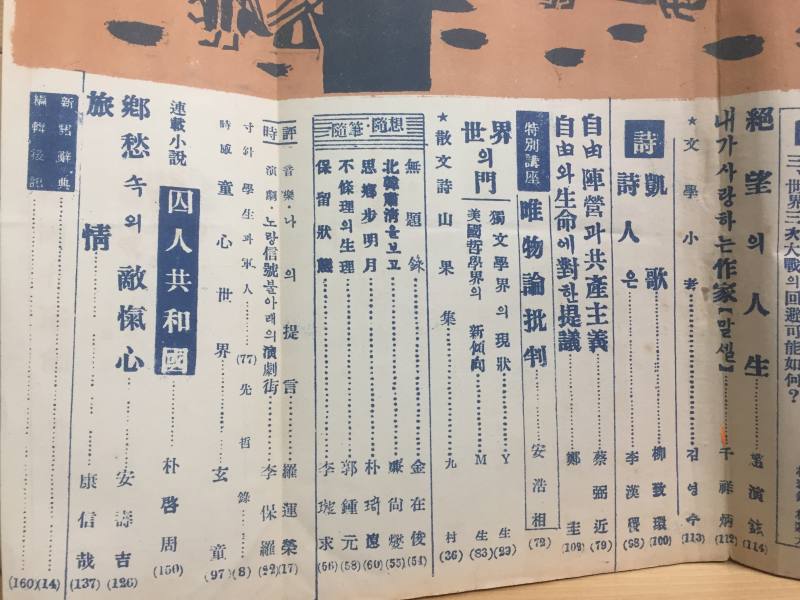 三、世界三次大戰의 回避可能如何?
絕望의 人生 (114)
내가 사랑하는 作家【말셀】 千祥炳 (112)
★文學小考 김영수 (113)
詩
凱歌 柳致環 (100)
詩人은 李漢稷 (98)
自由陣營과 共產主義 蔡弼近 (79)
自由와 生命에 對한 提議 鄭圭 (102)
特別講座
唯物論批判 安浩相 (72)
世界의 門
獨文學界의 現狀 Y生 (29)
美國哲學界의 新傾向 M生 (83)
★散文詩 山果集 九村 (36)
隨筆・隨想
無題錄 金在俊 (54)
北韓肅淸을 보고 廉尙燮 (55)
思鄕步明月 朴琦遠 (60)
不條理의 生理 郭鍾元 (58)
保留狀態 李琁求 (56)
時評
音樂・나의 提言 羅運榮 (17)
演劇・노랑信號불아래의 演劇街 李保羅 (22)
寸針 學生과 軍人 (77) 先哲錄 (8)
時感 童心世界 玄童 (97)
連載小說
囚人共和國 朴啓周 (150)
鄕愁 속의 敵愾心 安壽吉 (126)
旅情 康信哉 (137)
新語辭典 (14)
編輯後記 (160)